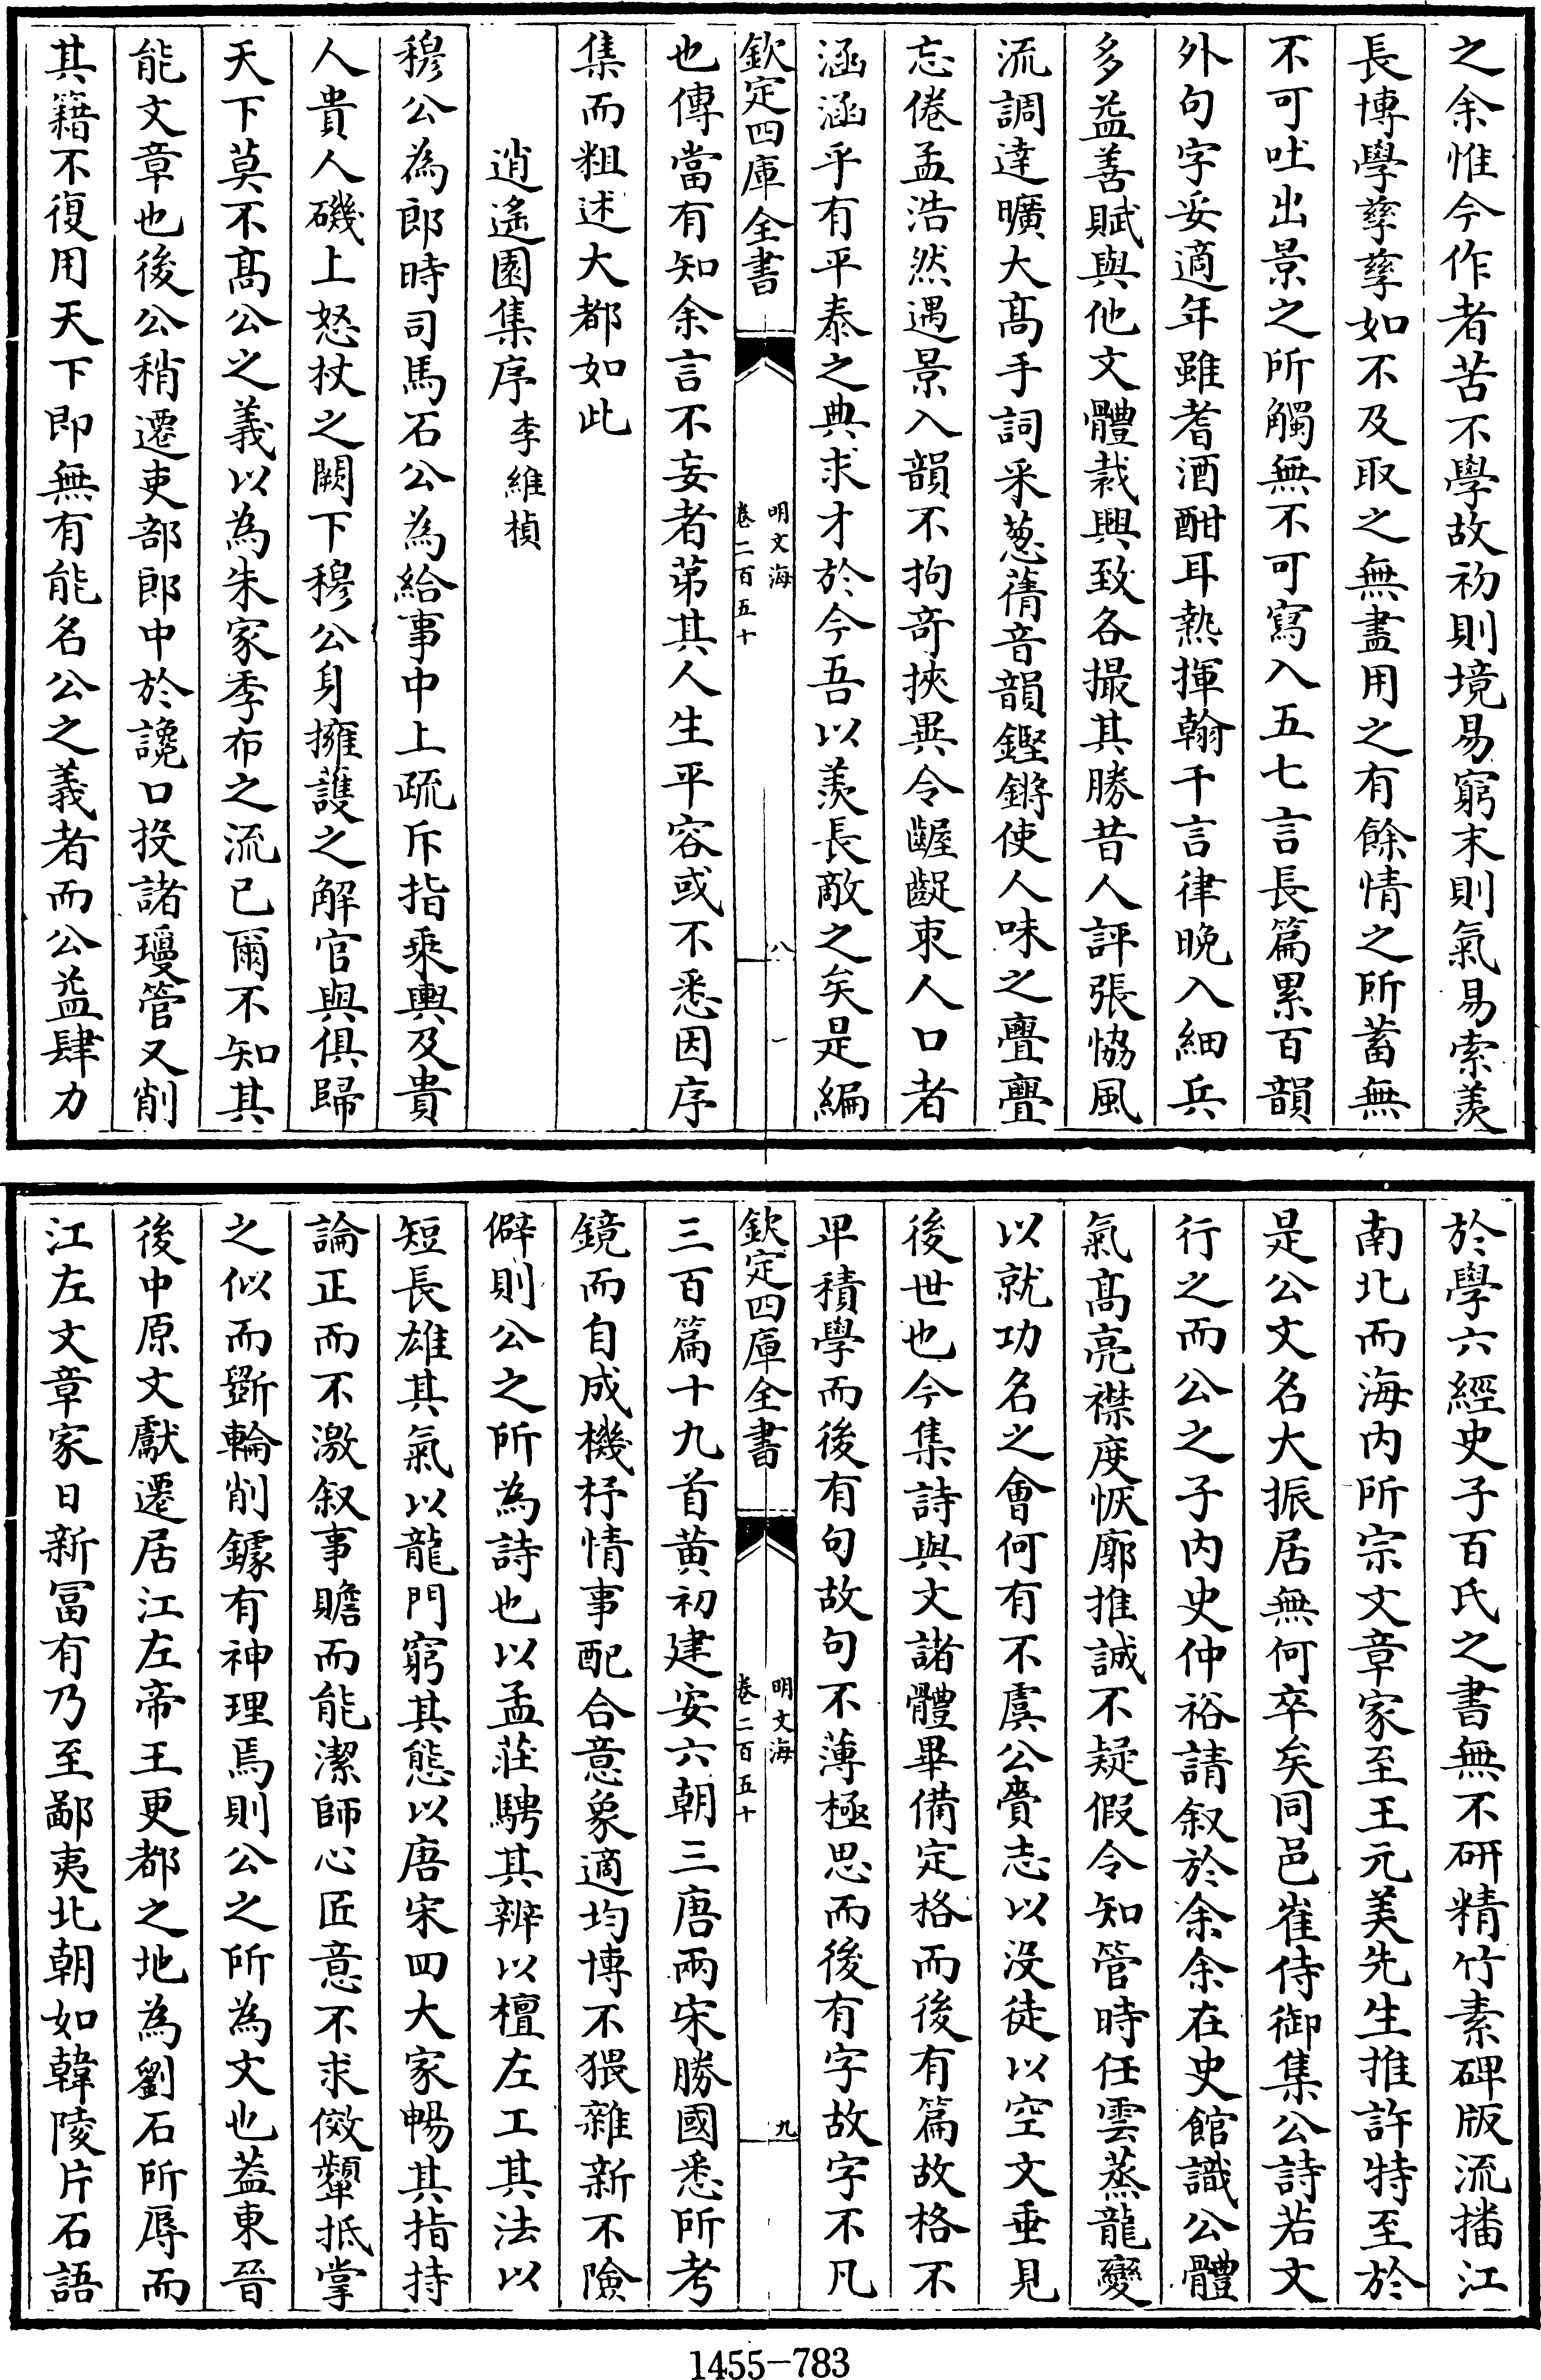 之余惟今作者苦不學故初則境易窮末則氣易索羨
長博學孳孳如不及取之無盡用之有餘情之所蓄無
不可吐出景之所觸無不可寫入五七言長篇累百韻
外句字妥適年雖耆酒酣耳熱揮翰千言律晚入細兵
多益善賦與他文體裁興致各撮其勝昔人評張恊風
流調達曠大髙手詞采葱蒨音韻鏗鏘使人味之亹亹
忘倦孟浩然遇景入韻不拘竒挾異令齷齪束人口者
涵涵乎有平泰之典求才於今吾以羨長敵之矣是編
欽定四庫全書
明文海
卷二百五十
八
也傳當有知余言不妄者苐其人生平容或不悉因序
集而粗述大都如此
逍遙園集序李維楨
穆公為郎時司馬石公為給事中上疏斥指乘輿及貴
人貴人磯上怒杖之闕下穆公身擁護之解官與俱歸
天下莫不髙公之義以為朱家季布之流已爾不知其
能文章也後公稍遷吏部郎中於讒口投諸瓊管又削
其籍不復用天下即無有能名公之義者而公益肆力
於學六經史子百氏之書無不研精竹素碑版流播江
南北而海内所宗文章家至王元美先生推許特至於
是公文名大振居無何卒矣同邑崔侍御集公詩若文
行之而公之子内史仲裕請叙於余余在史館識公體
氣髙亮襟度恢廓推誠不疑假令知管時任雲蒸龍變
以就功名之會何有不虞公賫志以沒徒以空文垂見
後世也今集詩與文諸體畢備定格而後有篇故格不
卑積學而後有句故句不薄極思而後有字故字不凡
欽定四庫全書
明文海
卷二百五十
九
三百篇十九首黄初建安六朝三唐兩宋勝國悉所考
鏡而自成機杼情事配合意象適均博不猥雜新不險
僻則公之所為詩也以孟莊騁其辨以檀左工其法以
短長雄其氣以龍門窮其態以唐宋四大家暢其指持
論正而不激叙事贍而能潔師心匠意不求傚顰抵掌
之似而斲輪削鐻有神理焉則公之所為文也葢東晉
後中原文獻遷居江左帝王更都之地為劉石所辱而
江左文章家日新冨有乃至鄙夷北朝如韓陵片石語
1455-783